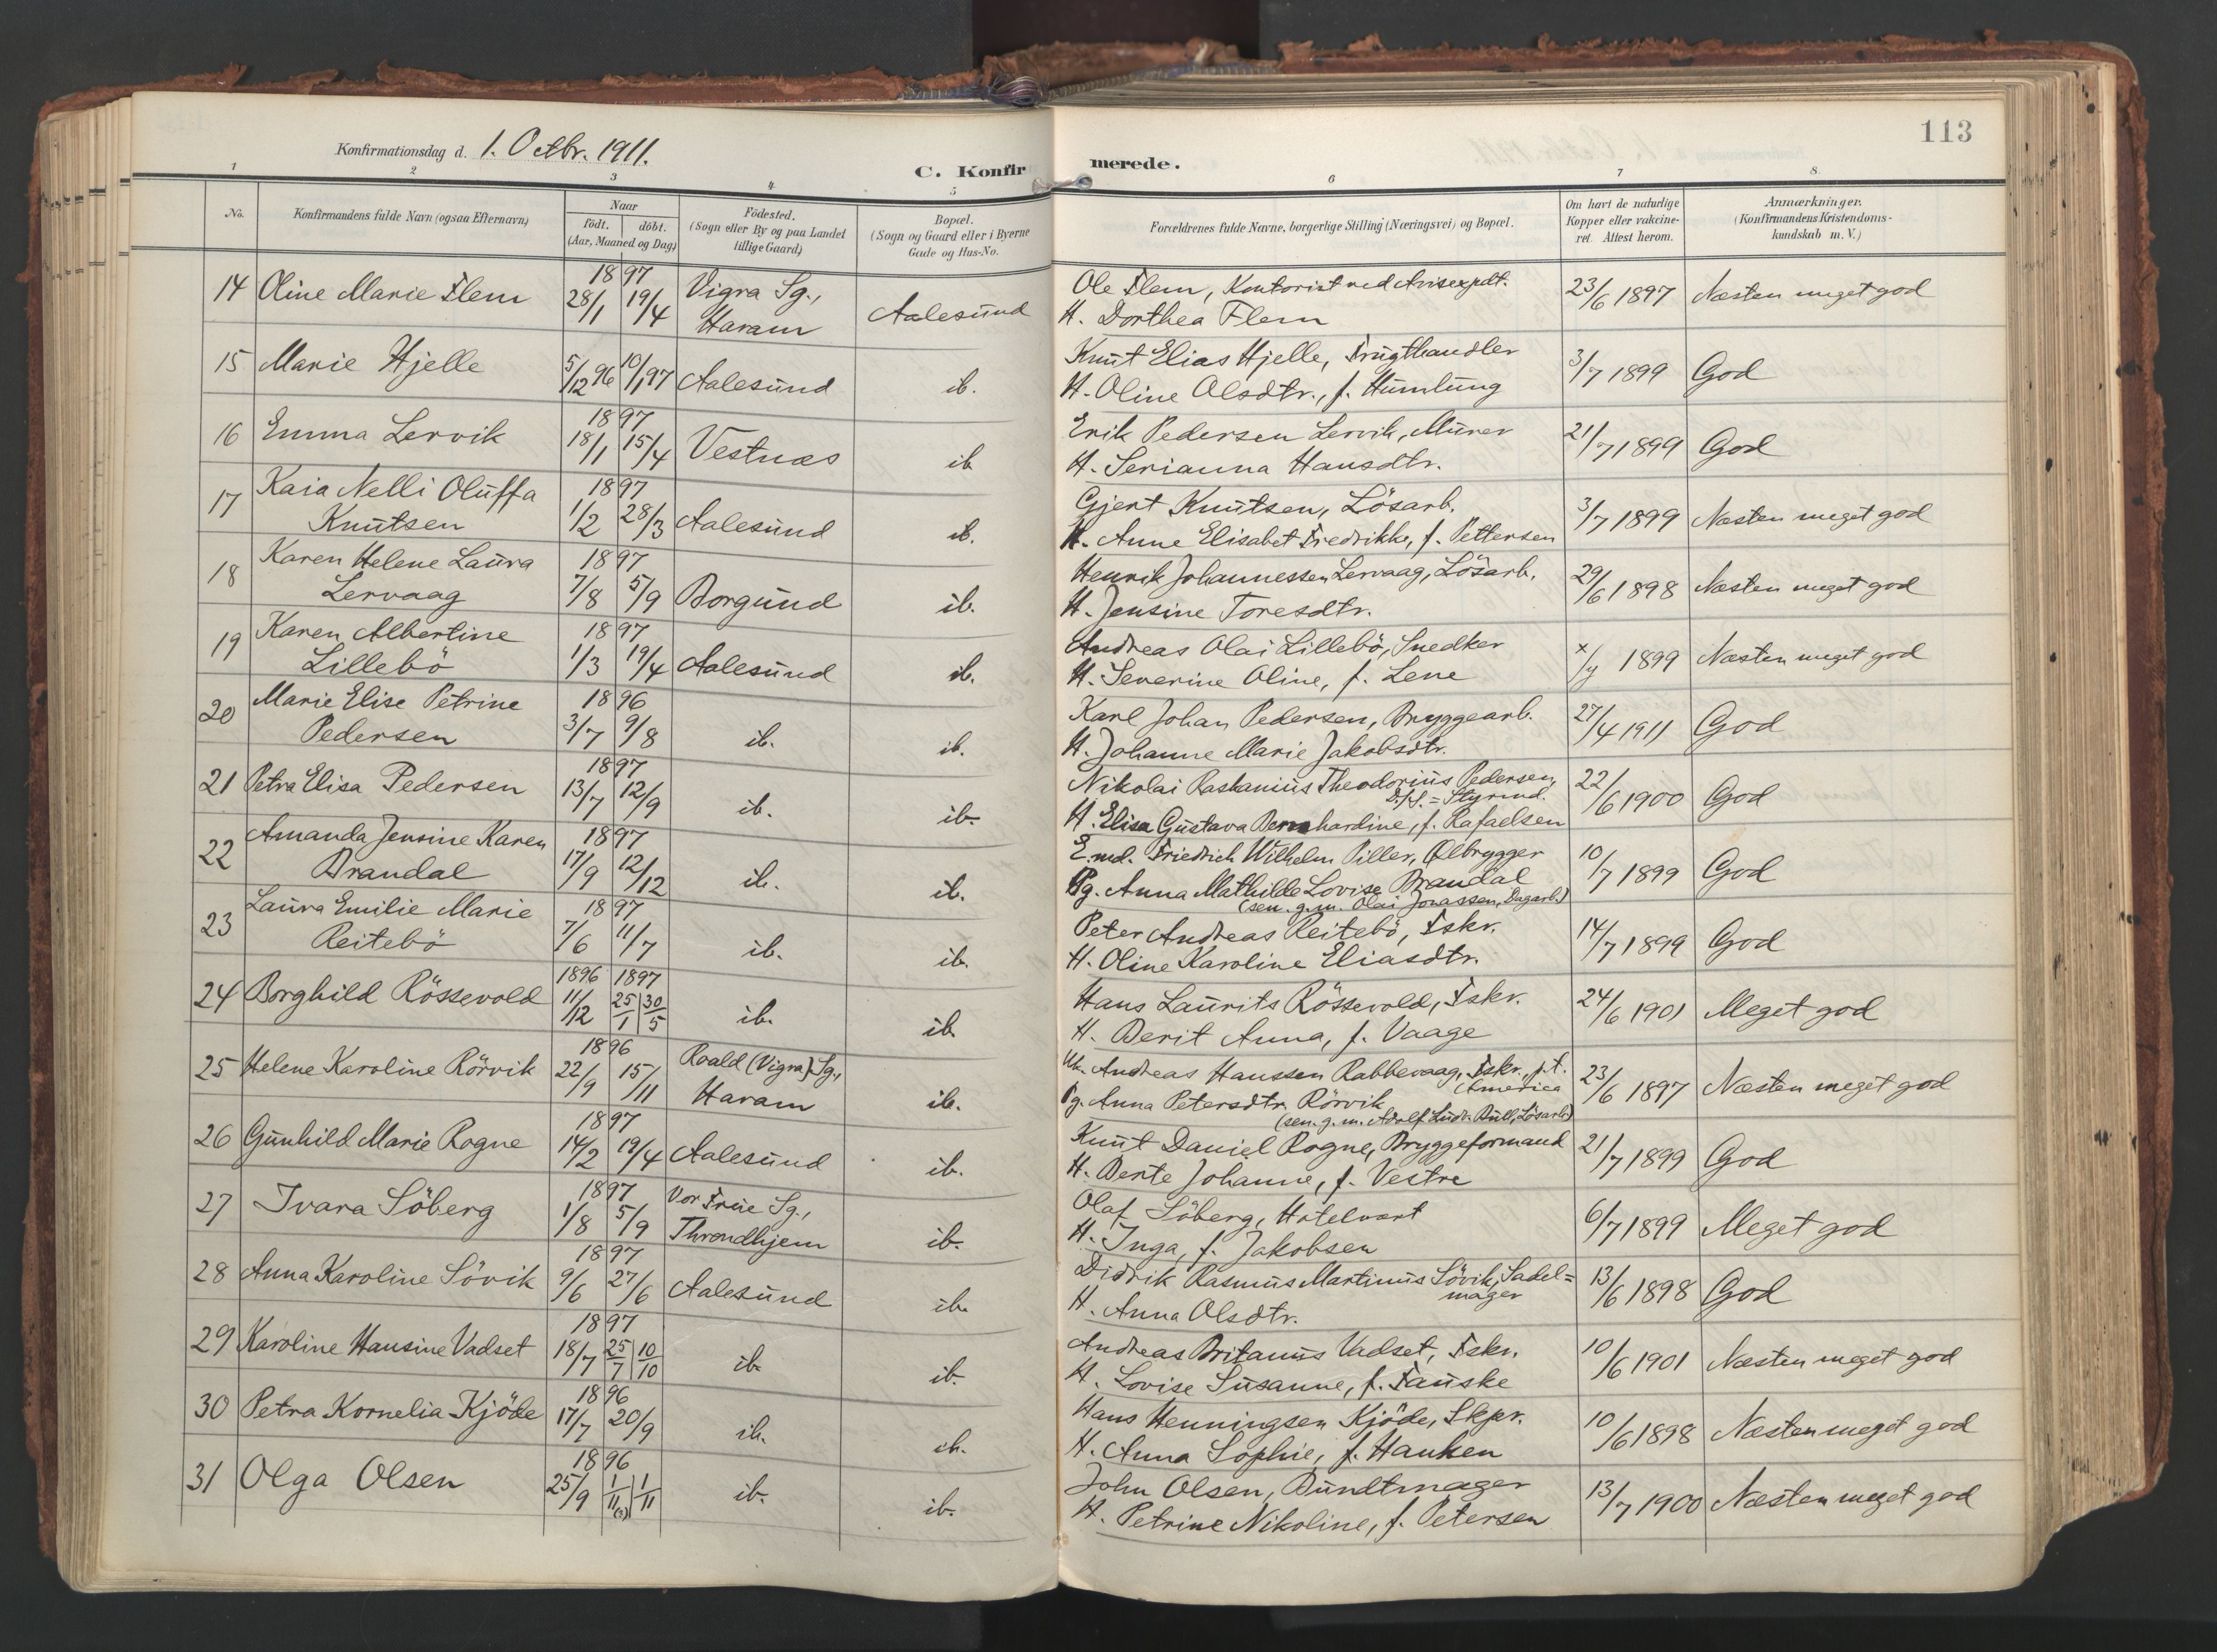 113
Konfirmationsdag d. 1. Octbr. 1911.
C. Konfirmerede.
1 2 3 4 5 6 7 8
No. Konfirmandens fulde Navn (ogsaa Efternavn) Naar født. døbt. (Aar, Maaned og Dag) Fødested. (Sogn eller By og paa Landet tillige Gaard) Bopæl. (Sogn og Gaard eller i Byerne Gade og Hus-No. Forældrenes fulde Navne, borgerlige Stilling (Næringsvei) og Bopæl. Om havt de naturlige Kopper eller vakcineret. Attest herom. Anmærkninger. (Konfirmandens Kristendomskundskab m. V.)
14 Oline Marie Flem 1897 28/1 19/4 Vigra Sg., Haram Aalesund Ole Flem, Kontorist ved Avisexpdt. 23/6 1897 Næsten meget god
H. Dorthea Flem
15 Marie Hjelle 5/12 96 10/1 97 Aalesund ib. Knut Elias Hjelle, Frugthandler 3/7 1899 God
H. Oline Olsdtr., f. Humlung
16 Emma Lervik 1897 18/1 15/4 Vestnæs ib. Erik Pedersen Lervik, Murer 21/7 1899 God
H. Serianna Hansdtr.
17 Kaia Nelli Oluffa Knutsen 1897 1/2 28/3 Aalesund ib. Gjert Knutsen, Lösarb. 3/7 1899 Næsten meget god
H. Anne Elisabet Fredrikke, f. Pettersen
18 Karen Helene Laura Lervaag 1897 7/8 5/9 Borgund ib. Henrik Johannessen Lervaag, Lösarb. 29/6 1898 Næsten meget god
H. Jensine Toresdtr.
19 Karen Albertine Lillebö 1897 1/3 19/4 Aalesund ib. Andreas Olai Lillebö, Snedker x/y 1899 Næsten meget god
H. Severine Oline, f. Lene
20 Marie Elise Petrine Pedersen 1896 3/7 9/8 ib. ib. Karl Johan Pedersen, Bryggearb. 27/4 1911 God
H. Johanne Marie Jakobsdtr.
21 Petra Elisa Pedersen 1897 13/7 12/9 ib. ib. Nikolai Raskanius Theodorius Pedersen, D./S.=Styrmd. 22/6 1900 God
H. Elisa Gustava Bernhardine, f. Rafaelsen
22 Amanda Jensine Karen Brandal 1897 17/9 12/12 ib. ib. E.md. Friedrich Wilhelm Piller, Ølbrygger 10/7 1899 God
Pg. Anna Mathilde Lovise Brandal
(sen. g. m. Olai Jonassen, Dagarb.)
23 Laura Emilie Marie Reitebö 1897 7/6 11/7 ib. ib. Peter Andreas Reitebö, Fskr. 14/7 1899 God
H. Oline Karoline Eliasdtr.
24 Borghild Rössevold 1896 11/12 1897 25/1 | 30/5 ib. ib. Hans Laurits Rössevold, Fskr. 24/6 1901 Meget god
H. Berit Anna, f. Vaage
25 Helene Karoline Rörvik 1896 22/9 15/11 Roald (Vigra) Sg., Haram ib. Uk. Andreas Hanssen Rabbevaag, Fskr., p.t. America 23/6 1897 Næsten meget god
Pg. Anna Petersdtr. Rörvik
(sen. g. m. Adolf Ludv. Bull, Lösarb.)
26 Gunhild Marie Rogne 1897 14/2 19/4 Aalesund ib. Knut Daniel Rogne, Bryggeformand 21/7 1899 God
H. Berte Johanne, f. Vestre
27 Ivara Söberg 1897 1/8 5/9 Vor Frue Sg., Throndhjem ib. Olaf Söberg, Hotelvært 6/7 1899 Meget god
H. Inga, f. Jakobsen
28 Anna Karoline Sövik 1897 9/6 27/6 Aalesund ib. Didrik Rasmus Martinus Sövik, Sadel=mager 13/6 1898 God
H. Anna Olsdtr.
29 Karoline Hansine Vadset 1897 18/7 25/7 | 10/10 ib. ib. Andreas Britanus Vadset, Fskr. 10/6 1901 Næsten meget god
H. Lovise Susanne, f. Fauske
30 Petra Kornelia Kjöde 1896 17/7 20/9 ib. ib. Hans Henningsen Kjöde, Skpr. 10/6 1898 Næsten meget god
H. Anna Sophie, f. Hanken
31 Olga Olsen 1896 25/9 1/11 | 1/11 ib. ib. John Olsen, Bundtmager 13/7 1900 Næsten meget god
H. Petrine Nikoline, f. Petersen